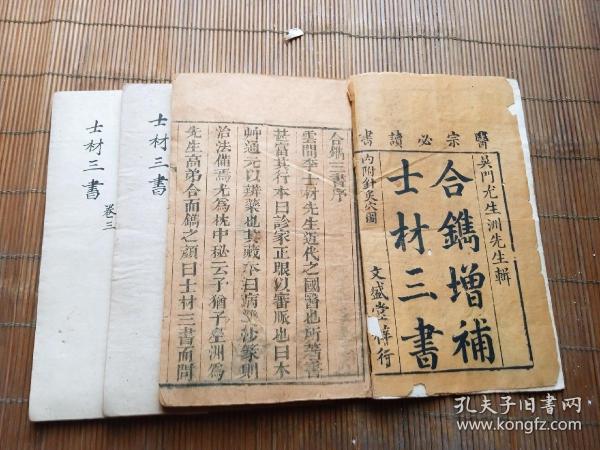 醫宗必讀書
吳門尤生洲先生輯
合鐫增補
士材三書
內附針灸穴圖
文盛堂梓行
合鐫三書序
雲間李士材先生近代之國醫也所著書
甚富其行本曰診家正眼以審脈也曰本
艸通元以辨藥也其藏本曰病機沙篆則
治法備焉尤為枕中秘云予猶子生洲為
先生高弟合而鐫之顏曰士材三書而問
士材三書
士材三書
卷三
孔夫子旧书网
book.kongfz.com